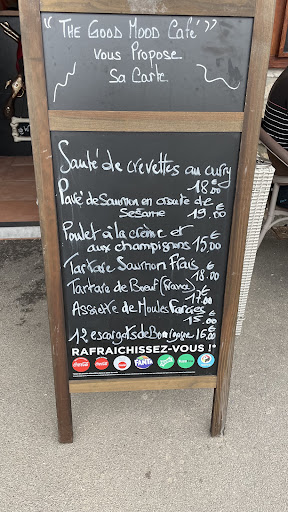 “THE GOOD MOOD Café”
vous Propose
sa Carte
Sauté de crevettes au curry
18.00 €
Pavé de Saumon en croute de
sesame 19.00 €
Poulet à la crème et
aux champignons 15,00 €
Tartare Saumon Frais
18.00 €
Tartare de Boeuf (France)
17.00 €
Assiette de Moules Farcies
15.00 €
12 escargots de Bourgogne 16.00 €
RAFRAICHISSEZ-VOUS !*
Coca-Cola
Coca-Cola
FANTA